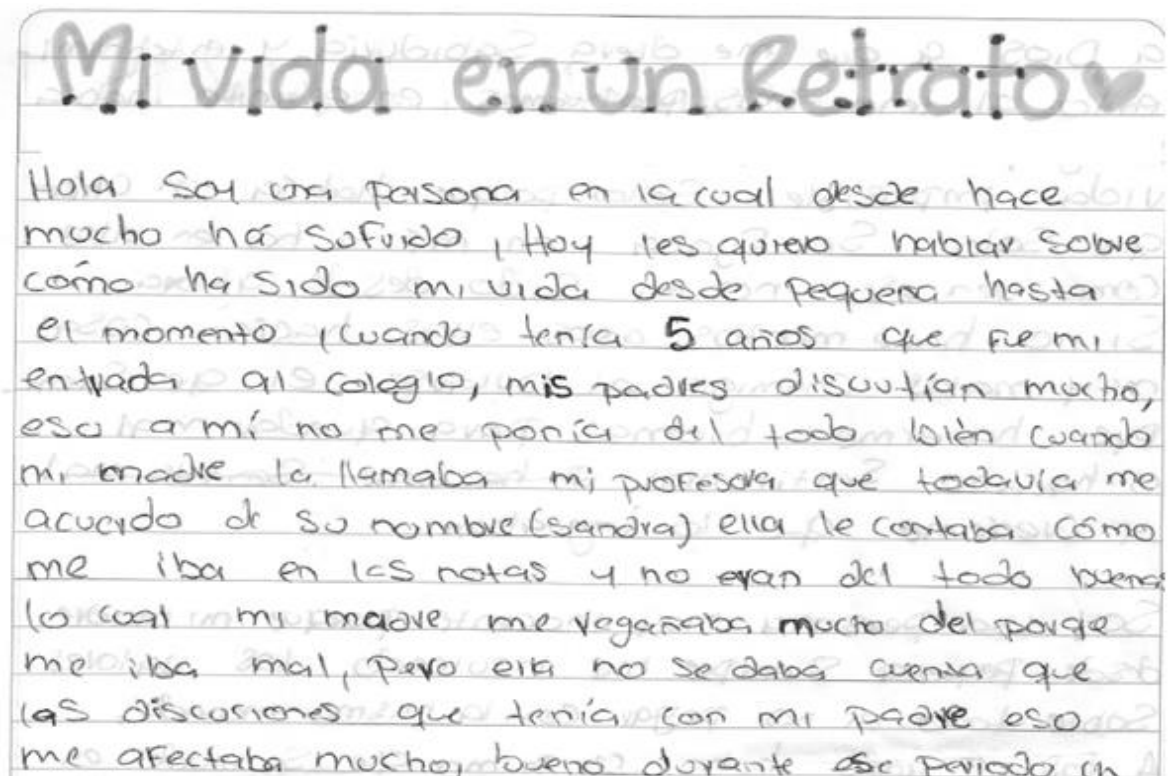 Mi vida en un Retrato
Hola Soy una persona en la cual desde hace
mucho há Sufrido, Hoy les quiero hablar Sobre
cómo ha Sido mi vida desde pequeña hasta
el momento, Cuando tenía 5 años que fue mi
entrada al colegio, mis padres discutían mucho,
eso a mí no me ponía del todo bién cuando
mi madre la llamaba mi profesora que todavía me
acuerdo de su nombre (sandra) ella le contaba cómo
me iba en las notas y no eran del todo buenas
lo cual mi madre me regañaba mucho del porqe
me iba mal, pero ella no se daba cuenta que
las discusiones que tenía con mi padre eso
me afectaba mucho, bueno durante ese periodo en